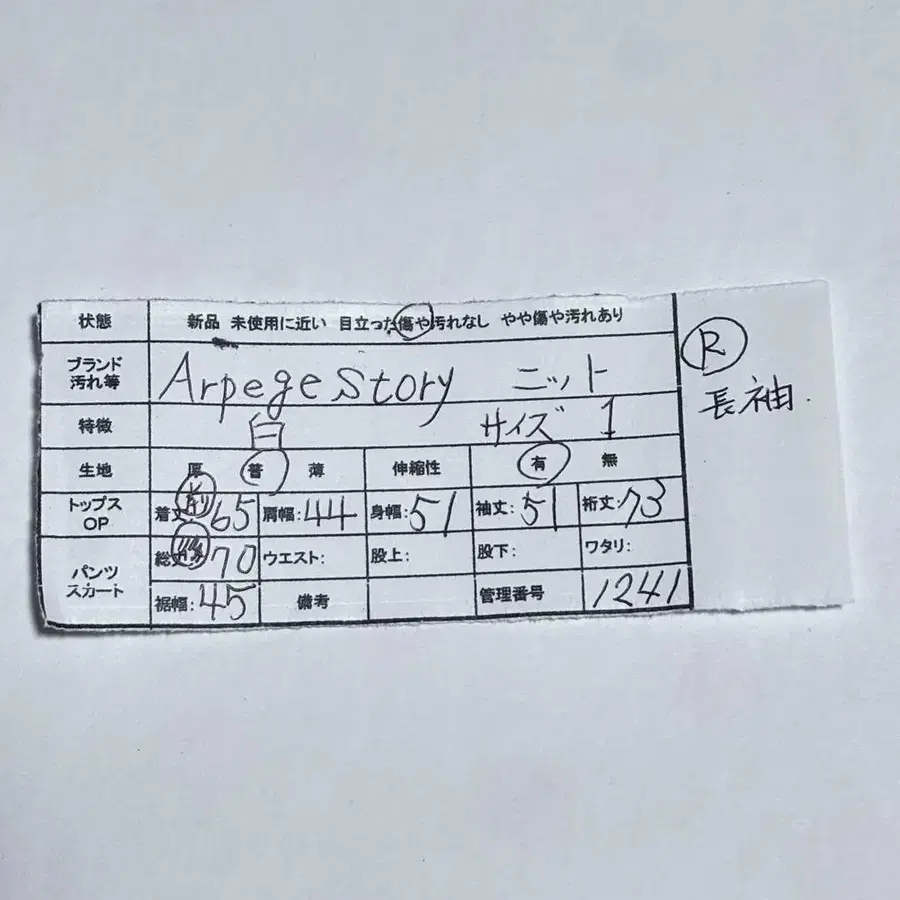 状態 新品 未使用に近い 目立った傷や汚れなし やや傷や汚れあり
ブランド
汚れ等 Arpege Story ニット
特徴 白 サイズ 1
生地 厚 普 薄 伸縮性 有 無
トップス
OP 着丈: 前 65 肩幅: 44 身幅: 51 袖丈: 51 裄丈: 73
パンツ
スカート 総丈: 後 70 ウエスト: 股上: 股下: ワタリ:
裾幅: 45 備考 管理番号 1241
R
長袖.